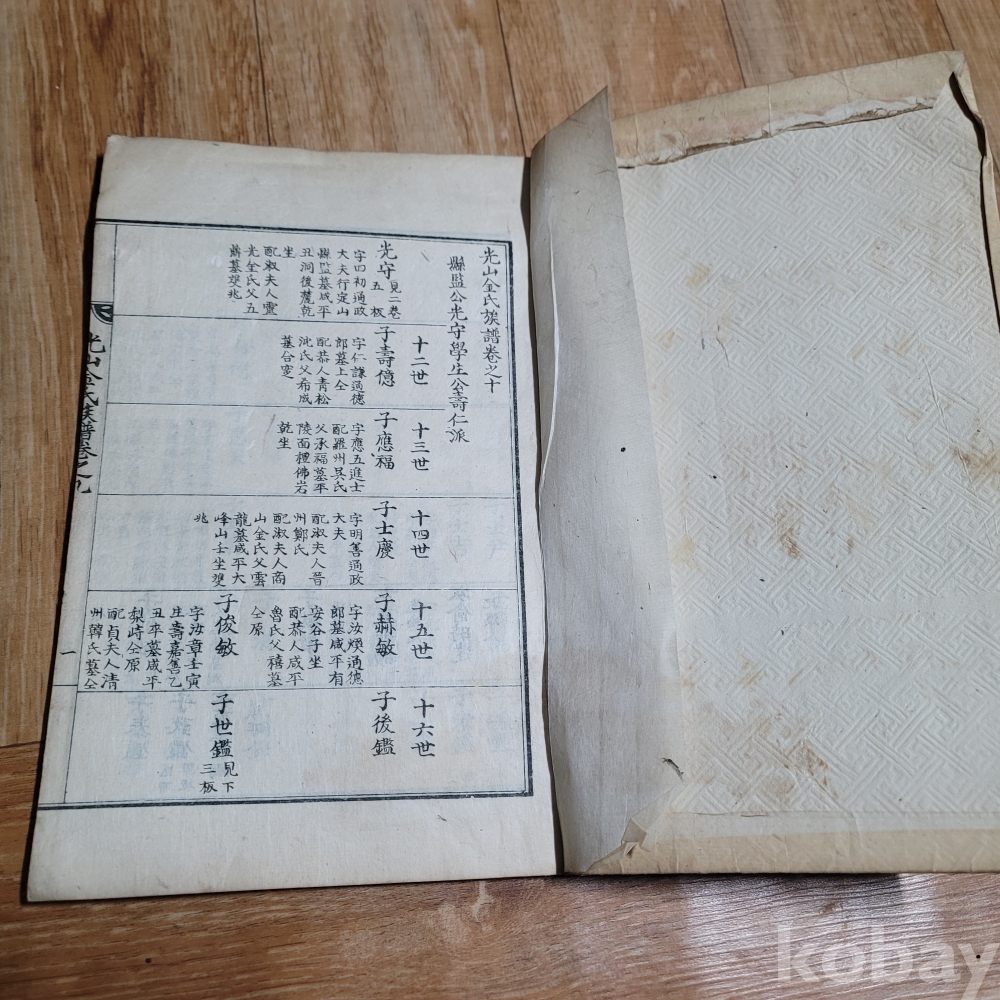 光山金氏族譜卷之十
縣監公光守學生公壽仁派
光守 見二卷五板
字四初通政
大夫行定山
縣監墓咸平
丑洞後麓乾
坐
配淑夫人靈
光金氏父五
鼎墓雙兆
十二世
子壽億
字仁謙通德
郎墓上仝
配恭人靑松
沈氏父希咸
墓合窆
十三世
子應福
字應五進士
配羅州吳氏
父承福墓平
陵面禮佛岩
乾坐
十四世
子士慶
字明善通政
大夫
配淑夫人晉
州鄭氏
配淑夫人商
山金氏父雲
龍墓咸平大
峰山壬坐雙
兆
十五世
子赫敏
字汝煥通德
郎墓咸平有
安谷子坐
配恭人咸平
魯氏父禧墓
仝原
子俊敏
字汝章壬寅
生壽嘉善乙
丑卒墓咸平
梨峙仝原
配貞夫人淸
州韓氏墓仝
十六世
子後鑑
子世鑑 見下三板
光山金氏族譜卷之九
一
kobay